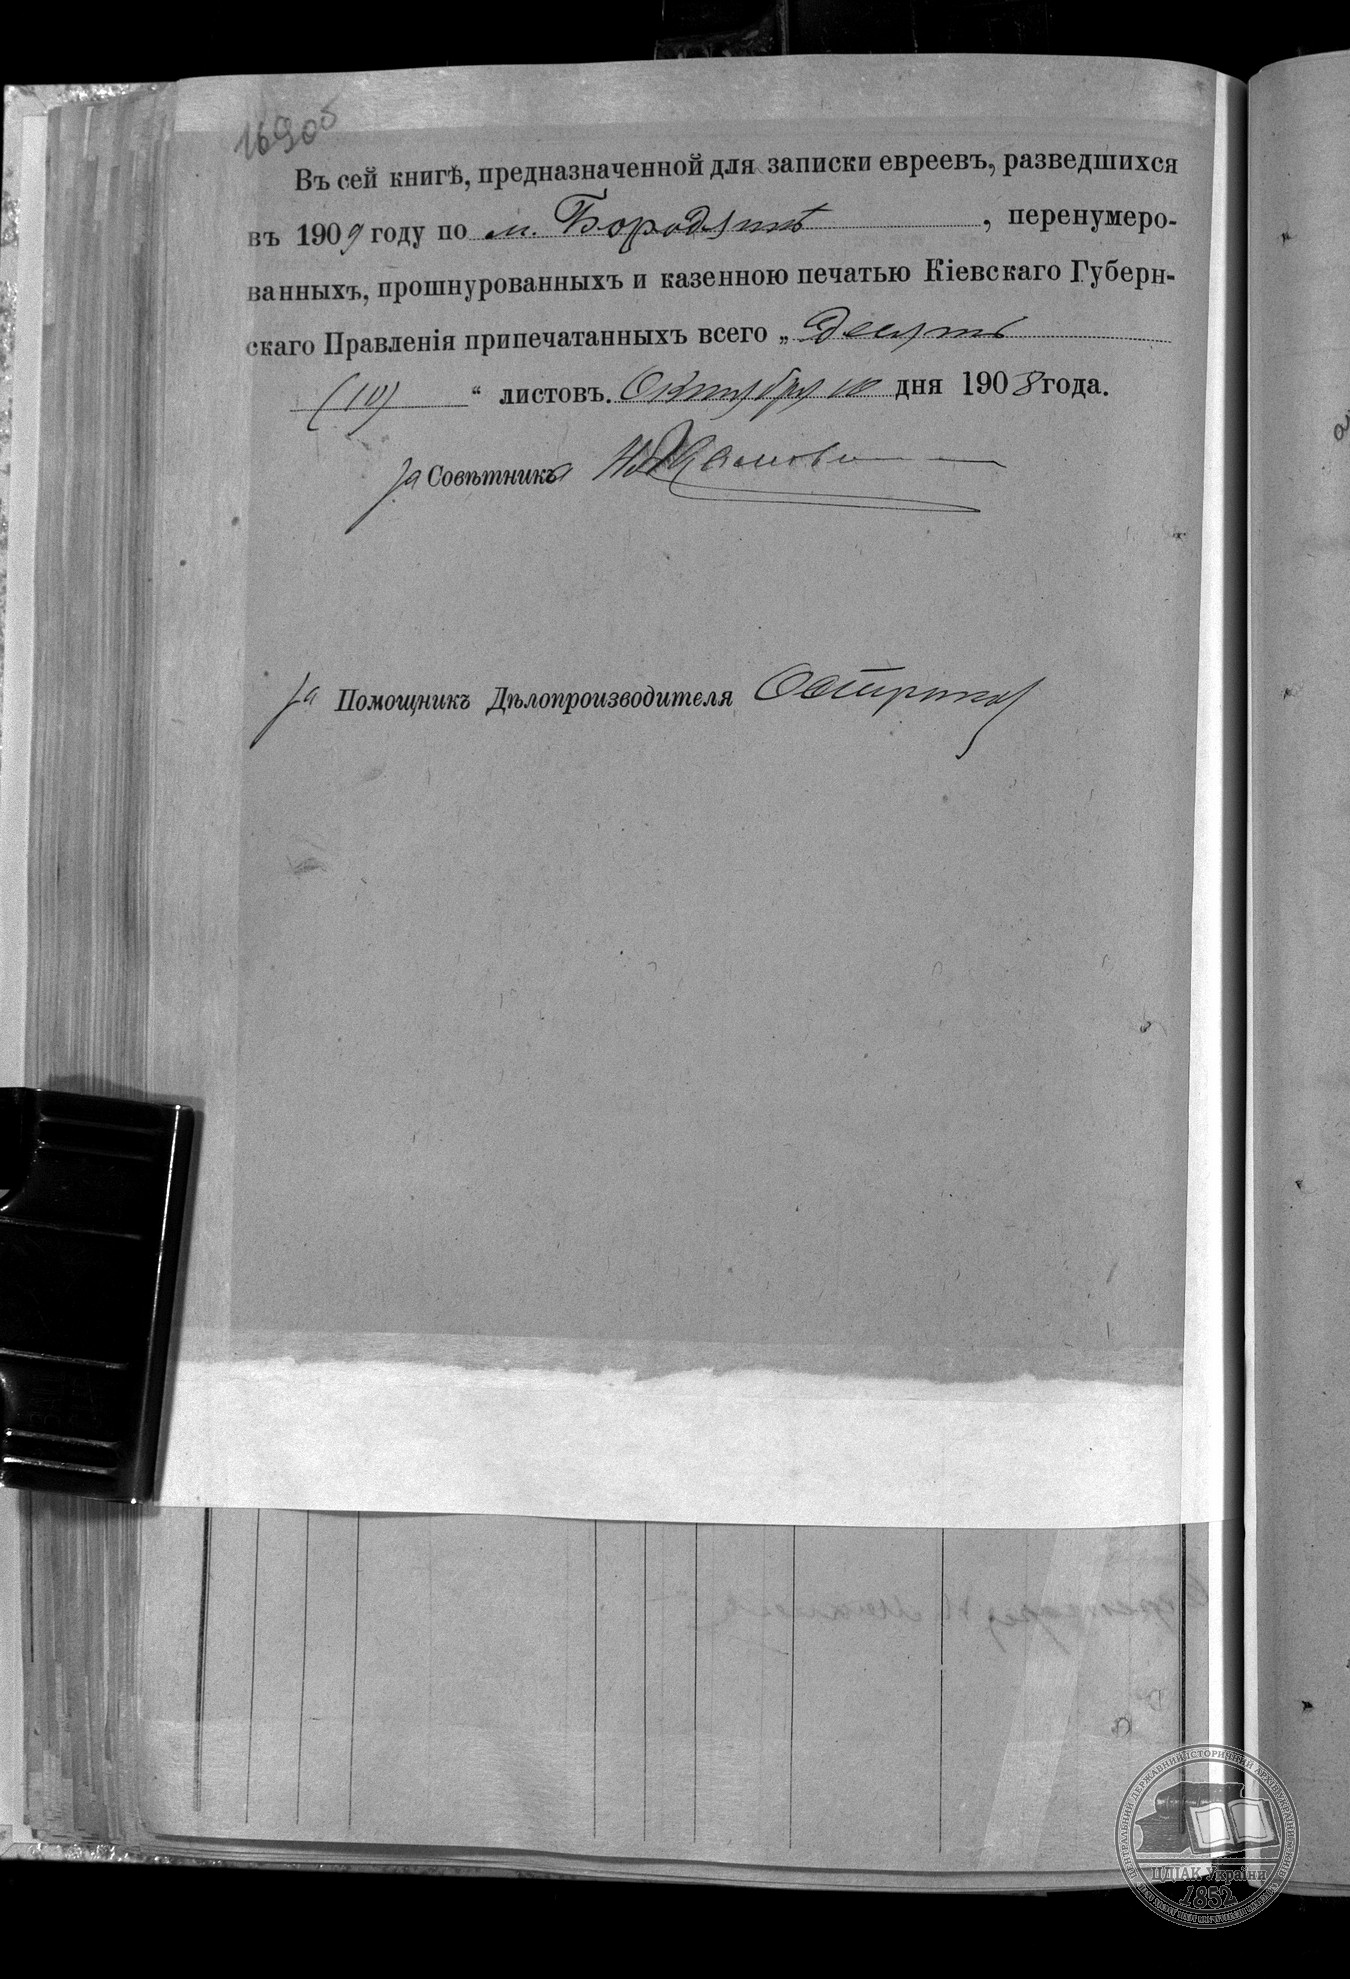 1690об
Въ сей книгѣ, предназначенной для записки евреевъ, разведшихся
въ 1909 году по м. Бородянкѣ, перенумеро-
ванныхъ, прошнурованныхъ и казенною печатью Кіевскаго Губерн-
скаго Правленія припечатанныхъ всего „ десять
(10) “ листовъ. Октября 10 дня 1908 года.
За Совѣтника
За Помощникъ Дѣлопроизводителя
ЦДІАК України
1852